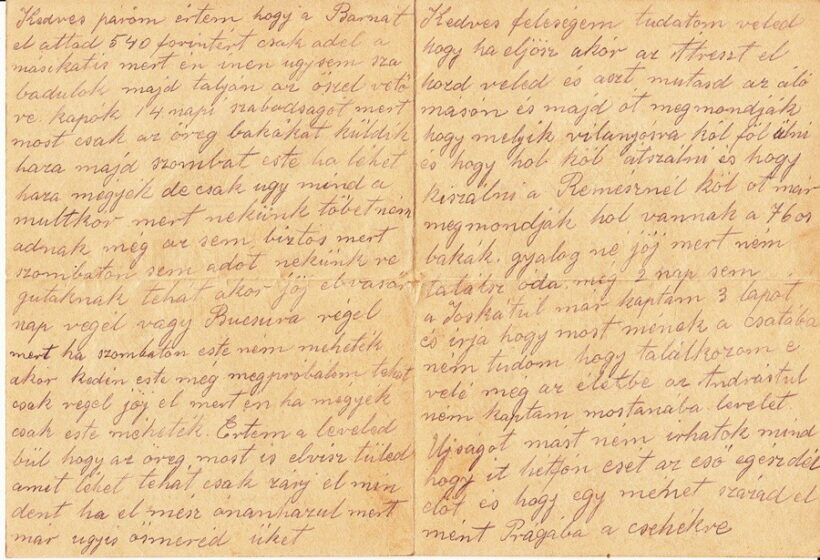 Kedves párom értem hogy a Barnát
el attad 540 forintért csak adel a
másikatis mert én inen ugysem sza
badulok majd taljan az őszel vető
re kapók 14 napi szabadságot mert
most csak az öreg bakákat küldik
haza majd szombat este ha léhet
haza mégyék de csak ugy mind a
multkor mert nekünk töbet ném
adnak még az sem biztos mert
szombaton sem adot nekünk re
gutáknak tehát akor jöj el vasár
nap végél vagy Bucsura régel
mert ha szombaton este nem mehéték
akór kedén este még megpróbálom tehát
csak régel jöj el mert én ha mégyék
csak este méhéték. Értem a leveled
bül hogy az öreg most is elvisz tüled
amit léhet tehát csak zárj el min
dent ha el mész ónanhazul mert
már ugyis ösmeréd üket
Kedves feleségem tudatom veled
hogy ha eljösz akór az Atreszt el
hozd veled és aszt mutasd az áló
másón és majd ót megmondják
hogy melyik vilanyósra köl föl ülni
és hogy hol köl átszálni és hogy
kiszálni a Remésznél köl ot már
megmondják hol vannak a 76os
bakák. gyalog ne jöj mert ném
találsz óda még 2 nap sem
a Joskátul már kaptam 3 lapót
és irja hogy most ménék a csatába
ném tudom hogy találkozom e
velé még az életbe az Andrástul
ném kaptam mostanába levelet
Ujságot mást ném irhatok mind
hogy it hétfón esét az eső egeszdél
előt és hogy egy ménét század el
mént Prágába a csehékre